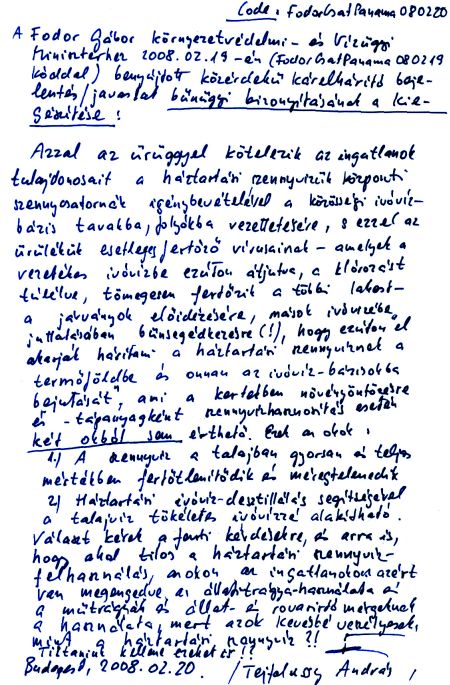 Code: FodorCsatPanama 080220
A Fodor Gábor környezetvédelmi- és Vízügyi
Miniszterhez 2008.02.19-én (FodorCsatPanama 080219
kóddal) benyújtott közérdekű kárelhárító beje-
lentés/javaslat bűnügyi bizonyításának a kie-
gészítése!
Azzal az ürüggyel kötelezik az ingatlanok
tulajdonosait a háztartási szennyvizük központi
szennycsatornák igénybevételével a közösségi ivóvíz-
bázis tavakba, folyókba vezettetésére, s ezzel az
ürülékük esetleges fertőző vírusainak - amelyek a
vezetékes ivóvízbe ezúton átjutva, a klórozást
túlélve, tömegesen fertőzik a többi lakost -
a járványok előidézésére, mások ivóvizébe
juttatásában bűnsegédkezésre (!), hogy ezúton el
akarják hárítani a háztartási szennyvíznek a
termőföldbe és onnan az ivóvíz-bázisokba
bejutását", ami a kertekben növényöntözésre
és -tápanyagként szennyvízhasznosítás esetén
két okból sem érthető. Ezek az okok:
1.) A szennyvíz a talajban gyorsan és teljes
mértékben fertőtlenítődik és méregtelenedik
2) Háztartási ivóvíz-desztillálás segítségével
a talajvíz tökéletes ivóvízzé alakítható.
Választ kérek a fenti kérdésekre, és arra is,
hogy ahol tilos a háztartási szennyvíz-
felhasználás, azokon az ingatlanokon azért
van megengedve az állattrágya-használata és
a műtrágyák és állat- és rovarirtó mérgeknek
a használata, mert azok kevésbé veszélyesek,
mint a háztartási szennyvíz?!
Tiltaniuk kellene ezeket is!!
Budapest, 2008.02.20. /Tejfalussy András/